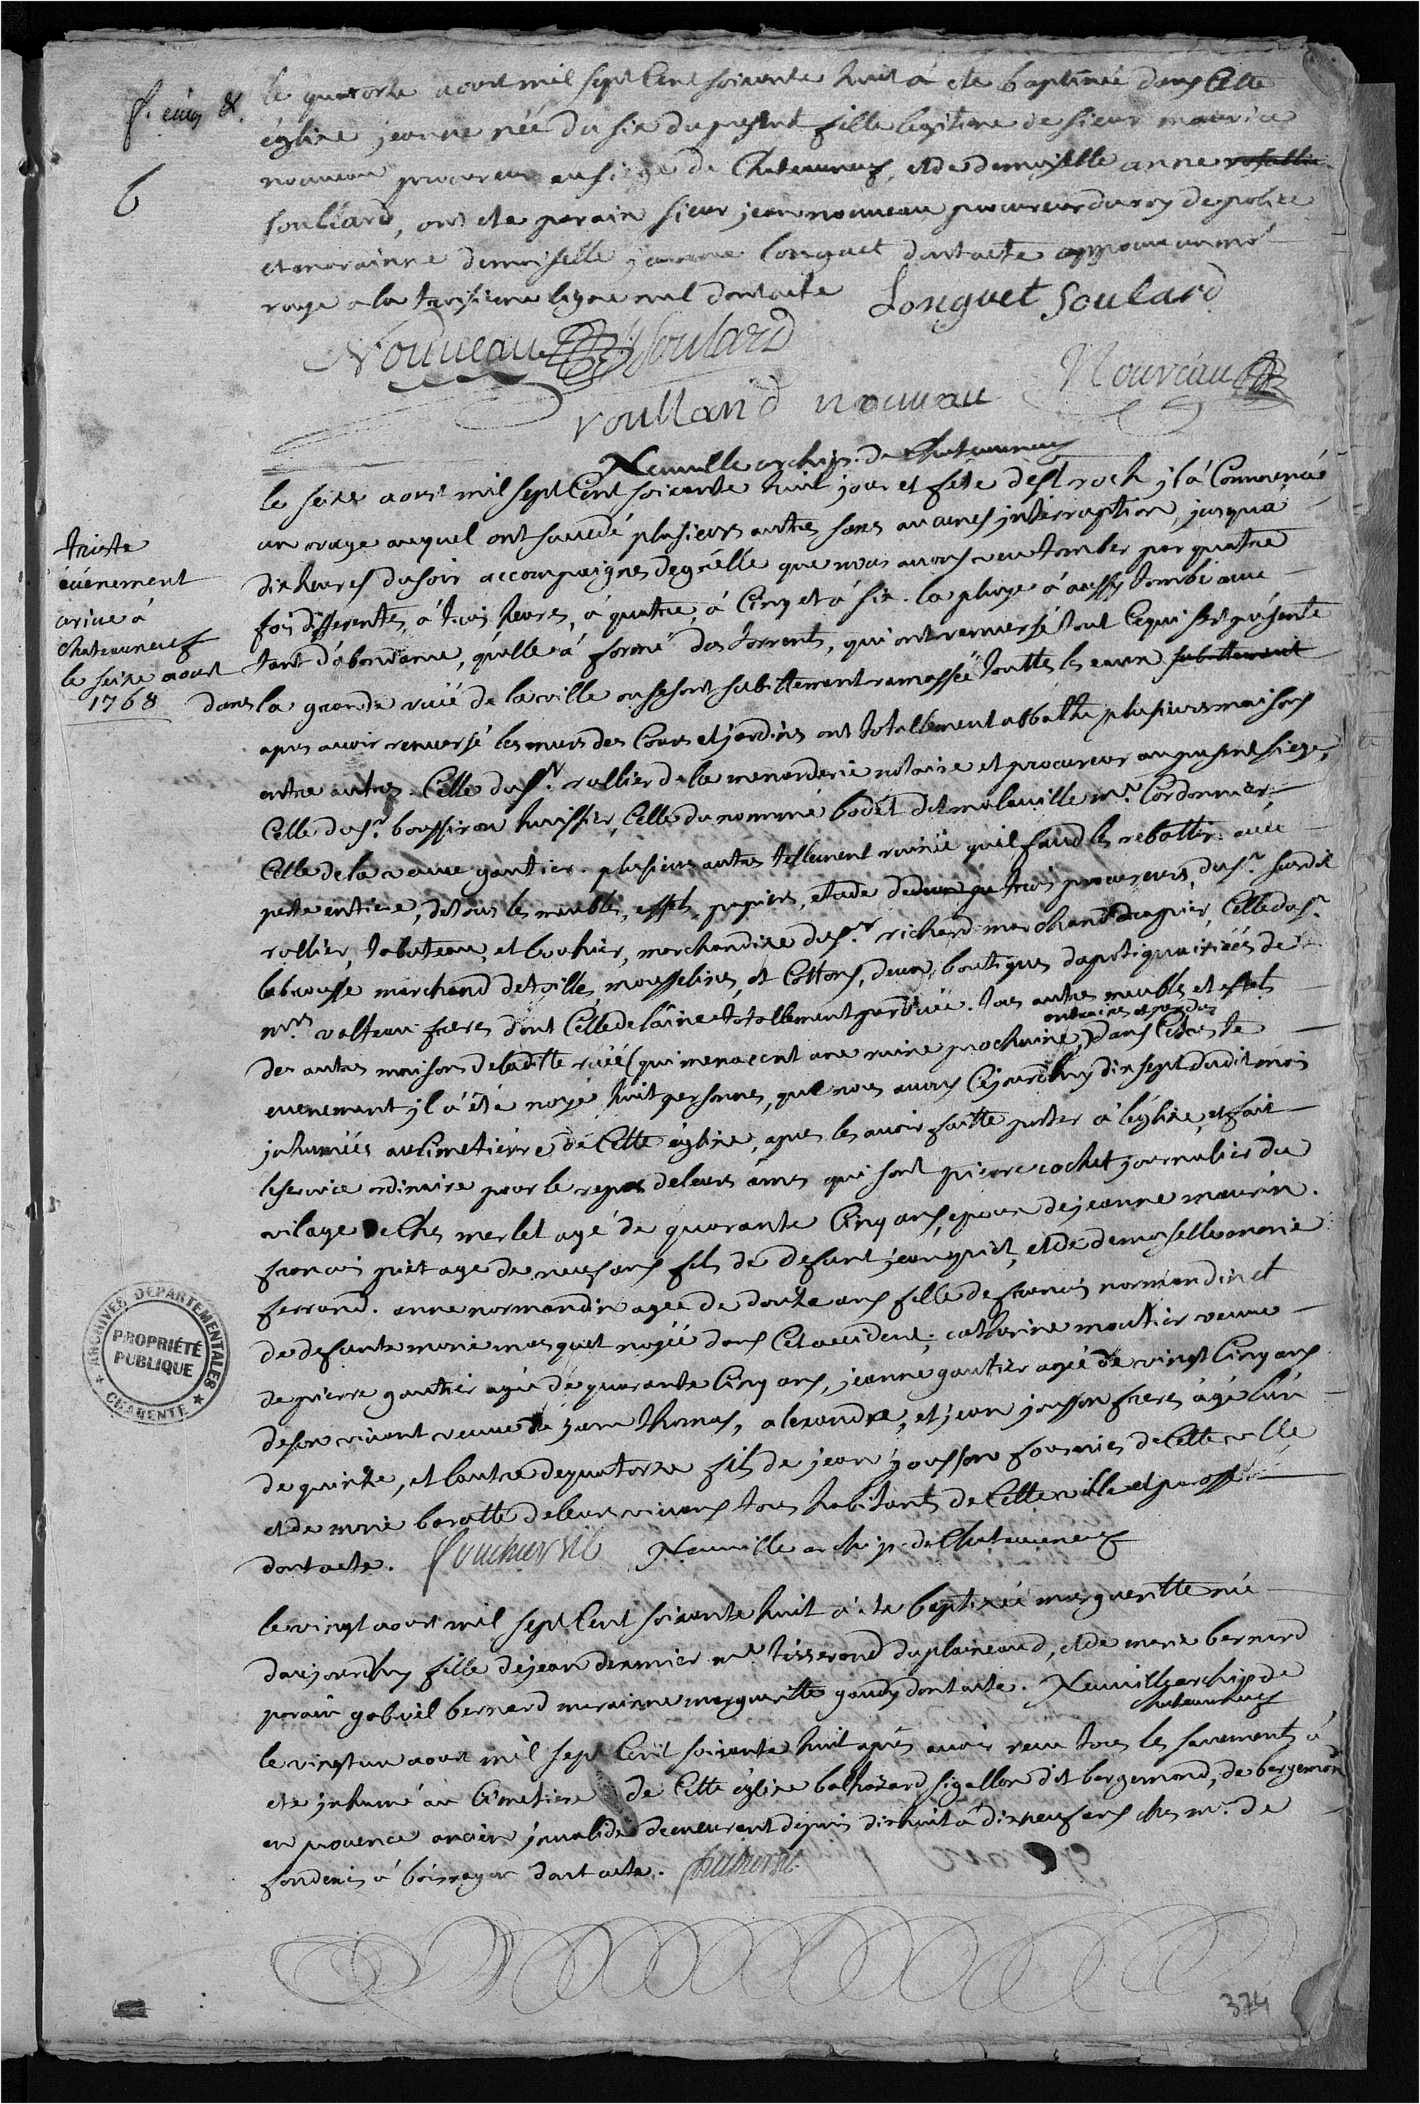 le quatorze aout mil sept Cent soixante huit à ete baptisée dans Cette
église jeanne née du six du present fille legitime de sieur maurice
nouveau procureur au siege de Chateauneuf, et de demoiselle anne rosallie
souléard, ont ete parain sieur jean nouveau procureur du roy de police
et marainne demoiselle jeanne longuet dont acte approuvé un mot
rayé a la troisieme ligne nul dont acte Longuet Soulard
Nouveau Soulard
Nouveau
voulland nouvau
Neuville archip. de Chateauneuf
6
triste
événement
arivé à
chateauneuf
le seize aout
1768
le seize aout mil sept Cent soixante huit jour et fete de st roch jl à Commencé
un orage auquel ont succedé plusieurs autres sans aucunes jnterruption, jusqua
dix heures du soir accompaignes de grélle que nous avons veu tomber par quatre
fois differentes, à trois heures, à quatre, à Cinq et à six. la pluye à aussy tombé avec
tant d'abondance, quélle à formé des torrents, qui ont renversé tout Cequi sest présenté
dans la grande ruüe de la ville ou se sont subittement ramassée touttes les eaux subittement
apres avoir renversé les murs des Cours et jardins ont totallement abbattu plusieurs maisons
entre autres. Celle du sr. rullier de la menarderie notaire et procureur au present siege,
Celle du sr. boussiron huissier, Celle du nommé bodet dit maleville mr. Cordonnier,
Celle de la veuve gautier. plusieurs autres tellement ruinée quil faud les rebattir. avec
perte entiere, de tous les meubles, effets, papiers, etude de trois procureurs, du sr. susdit
rullier, tabuteau, et bouhier, marchandise du sr. richard marchand drapier, Celle du sr.
labrousse marchand de toille, mousselines, et Cottons, deux boutiques dapotiquairiées de
mrs. valteau freres dont Celle de lâine totallement perduée. tous autres meubles et effets
entrainés et perdus
des autres maisons de ladite ruée (qui menacent une ruine prochaine,) dans Ce triste
evenement jl à été noyé huit personnes, que nous avons Cejourdhuy dix sept dudit mois
jnhumées au Cimetierre de Cette église, apres les avoir faitte porter à léglise, et fait
le service ordinaire pour le repos de leurs âmes qui sont pierre cochet journalier du
vilage de Chés merlet agé de quarante Cinq ans, epoux de jeanne maurin.
francois piet age de neuf ans fils de defunt jean piet, et de demoiselle marie
ferrand. anne normandin agee de douze ans fille de francois normandin et
de defunte marie masquet noyée dans Cet accident; catherine moutier veuve
de pierre gautier agée de quarante Cinq ans, jeanne gautier agée de vingt Cinq ans
de son vivant veuve de jean thomas, alexandre, et jean jousson freres âgé lún
de quinze, et lautre de quatorze fils de jean jousson fournier de Cette ville
et de marie baratte de leurs vivans tous habitants de Cette ville et parosse
dont acte. Neuville archip. de Chateauneuf
le vingt aout mil sept Cent soixante huit à ete baptisée margueritte née
daujourdhuy fille de jean dexmier mr. tisserand du plaineaud, et de marie bernard
parain gabriel bernard marainne margueritte gaudy dont acte. Neuville archip de
chateauneuf
le vingt un aout mil sept Cent soixante huit après avoir receu tous les sacrements à
ete jnhumé au Cimetiere de Cette église balthazard sigallon dit bargemond, de bargemon
en provence ancien jnvalide demeurant depuis dix huit à dix neuf ans chés mr. de
fondenis à boisrayer dont acte.
374
ARCHIVES DÉPARTEMENTALES
PROPRIÉTÉ
PUBLIQUE
CHARENTE